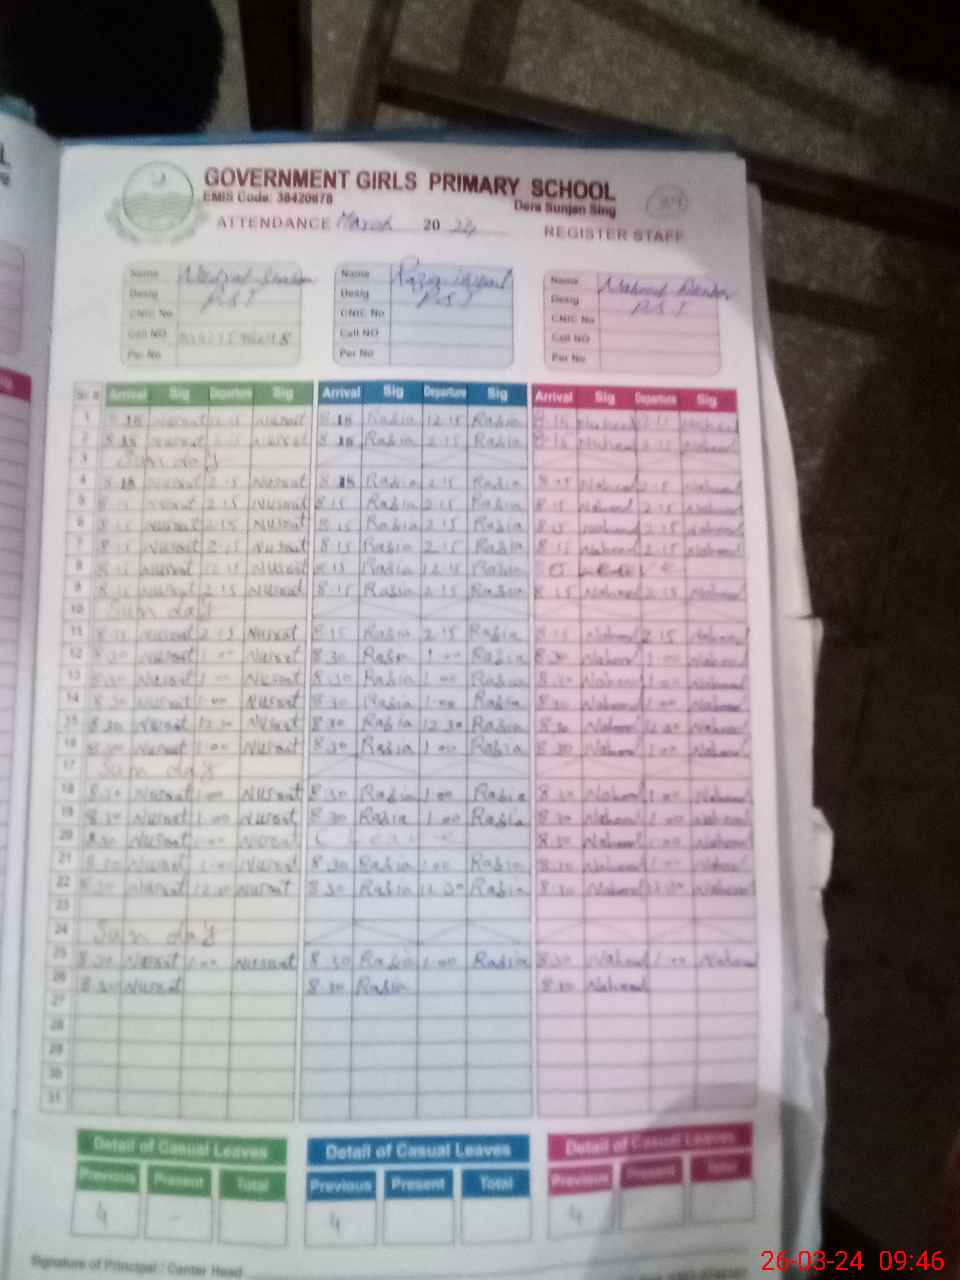 GOVERNMENT GIRLS PRIMARY SCHOOL
EMIS Code: 38420678
Dera Sunjan Sing
ATTENDANCE March 2024 REGISTER STAFF
Name Name Razia Name Naheed
Desig P.S.T Desig P.S.T Desig P.S.T
CNIC No CNIC No CNIC No
Cell NO Cell NO Cell NO
Per No Per No Per No
Arrival Sig Departure Sig Arrival Sig Departure Sig Arrival Sig Departure Sig
1 8.15 Nusrat Nusrat 8.15 Rabia 12.15 Rabia 8.15 Naheed 12.15 Naheed
2 8.15 Nusrat 2.15 Nusrat 8.15 Rabia 2.15 Rabia 8.15 Naheed 2.15 Naheed
3 Sunday
4 8.15 Nusrat 2.15 Nusrat 8.15 Rabia 2.15 Rabia 8.15 Naheed 2.15 Naheed
5 8.15 Nusrat 2.15 Nusrat 8.15 Rabia 2.15 Rabia 8.15 Naheed 2.15 Naheed
6 8.15 Nusrat 2.15 Nusrat 8.15 Rabia 2.15 Rabia 8.15 Naheed 2.15 Naheed
7 8.15 Nusrat 2.15 Nusrat 8.15 Rabia 2.15 Rabia 8.15 Naheed 2.15 Naheed
8 8.15 Nusrat 12.15 Nusrat 8.15 Rabia 12.15 Rabia C Leave
9 8.15 Nusrat 2.15 Nusrat 8.15 Rabia 2.15 Rabia 8.15 Naheed 2.15 Naheed
10 Sunday
11 8.15 Nusrat 2.15 Nusrat 8.15 Rabia 2.15 Rabia 8.15 Naheed 2.15 Naheed
12 8.30 Nusrat 1.00 Nusrat 8.30 Rabia 1.00 Rabia 8.30 Naheed 1.00 Naheed
13 8.30 Nusrat 1.00 Nusrat 8.30 Rabia 1.00 Rabia 8.30 Naheed 1.00 Naheed
14 8.30 Nusrat 1.00 Nusrat 8.30 Rabia 1.00 Rabia 8.30 Naheed 1.00 Naheed
15 8.30 Nusrat 12.30 Nusrat 8.30 Rabia 12.30 Rabia 8.30 Naheed 12.30 Naheed
16 8.30 Nusrat 1.00 Nusrat 8.30 Rabia 1.00 Rabia 8.30 Naheed 1.00 Naheed
17 Sunday
18 8.30 Nusrat 1.00 Nusrat 8.30 Rabia 1.00 Rabia 8.30 Naheed 1.00 Naheed
19 8.30 Nusrat 1.00 Nusrat 8.30 Rabia 1.00 Rabia 8.30 Naheed 1.00 Naheed
20 8.30 Nusrat 1.00 Nusrat C Leave 8.30 Naheed 1.00 Naheed
21 8.30 Nusrat 1.00 Nusrat 8.30 Rabia 1.00 Rabia 8.30 Naheed 1.00 Naheed
22 8.30 Nusrat Nusrat 8.30 Rabia 12.30 Rabia 8.30 Naheed 12.30 Naheed
23
24 Sunday
25 8.30 Nusrat 1.00 Nusrat 8.30 Rabia 1.00 Rabia 8.30 Naheed 1.00 Naheed
26 8.30 Nusrat 8.30 Rabia 8.30 Naheed
27
28
29
30
31
Detail of Casual Leaves Detail of Casual Leaves Detail of Casual Leaves
Previous Present Total Previous Present Total Previous Present Total
4 - 4 4
Signature of Principal / Center Head
26-03-24 09:46